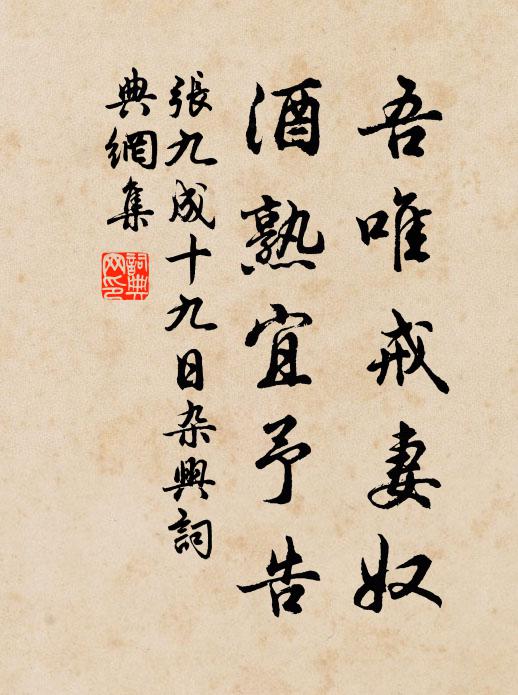 吾唯戒妻奴
酒熟宜予告
張九成十九日杂興詞
典網集
詞典网印